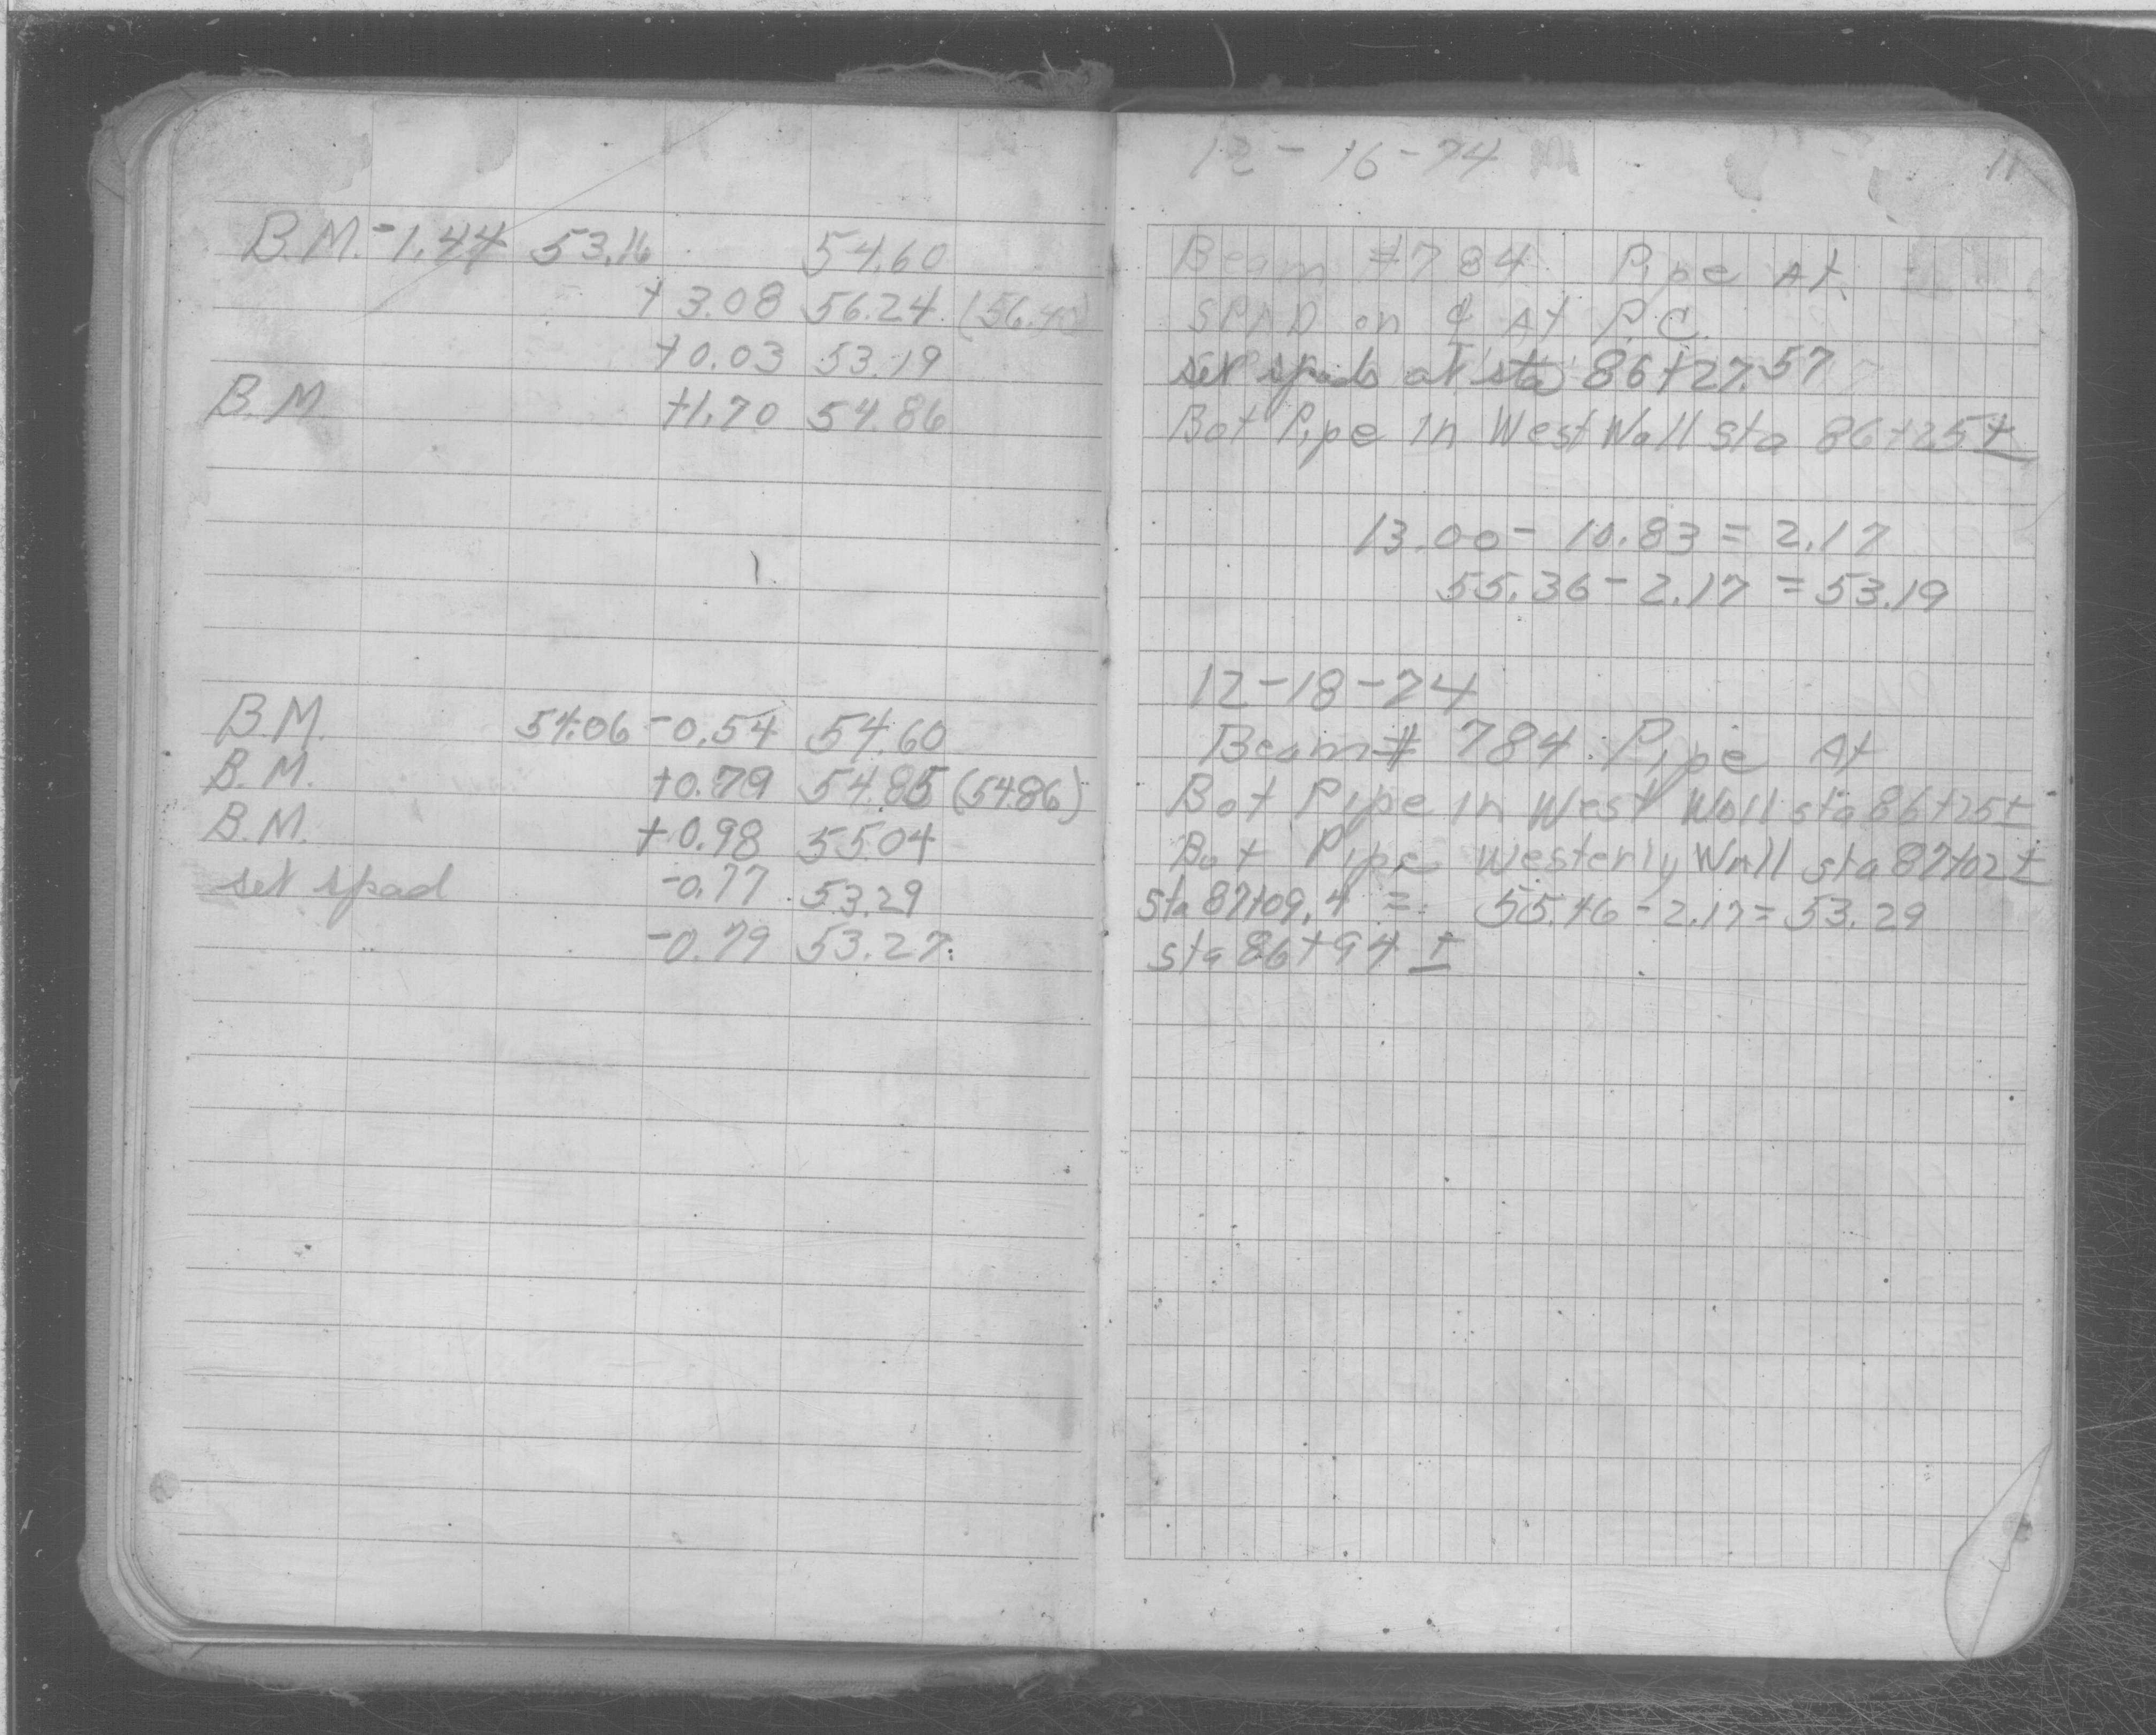 B.M. -1.44 53.16 54.60
+3.08 56.24 (56.40)
+0.03 53.19
B.M. +1.70 54.86
B.M. 54.06 -0.54 54.60
B.M. +0.79 54.85 (54.86)
B.M. +0.98 55.04
set spad -0.77 53.29
" -0.79 53.27
12-16-74
11
Beam #784 Pipe At
SPAD on ℄ At P.C.
set spads at sta 86+27.57
Bot Pipe In West Wall Sta 86+25±
13.00 - 10.83 = 2.17
55.36 - 2.17 = 53.19
12-18-74
Beam # 784 Pipe At
Bot Pipe In West Wall sta 86+25±
Bot Pipe Westerly Wall sta 87+02±
Sta 87+09.4 = 55.46 - 2.17 = 53.29
sta 86+94 ±